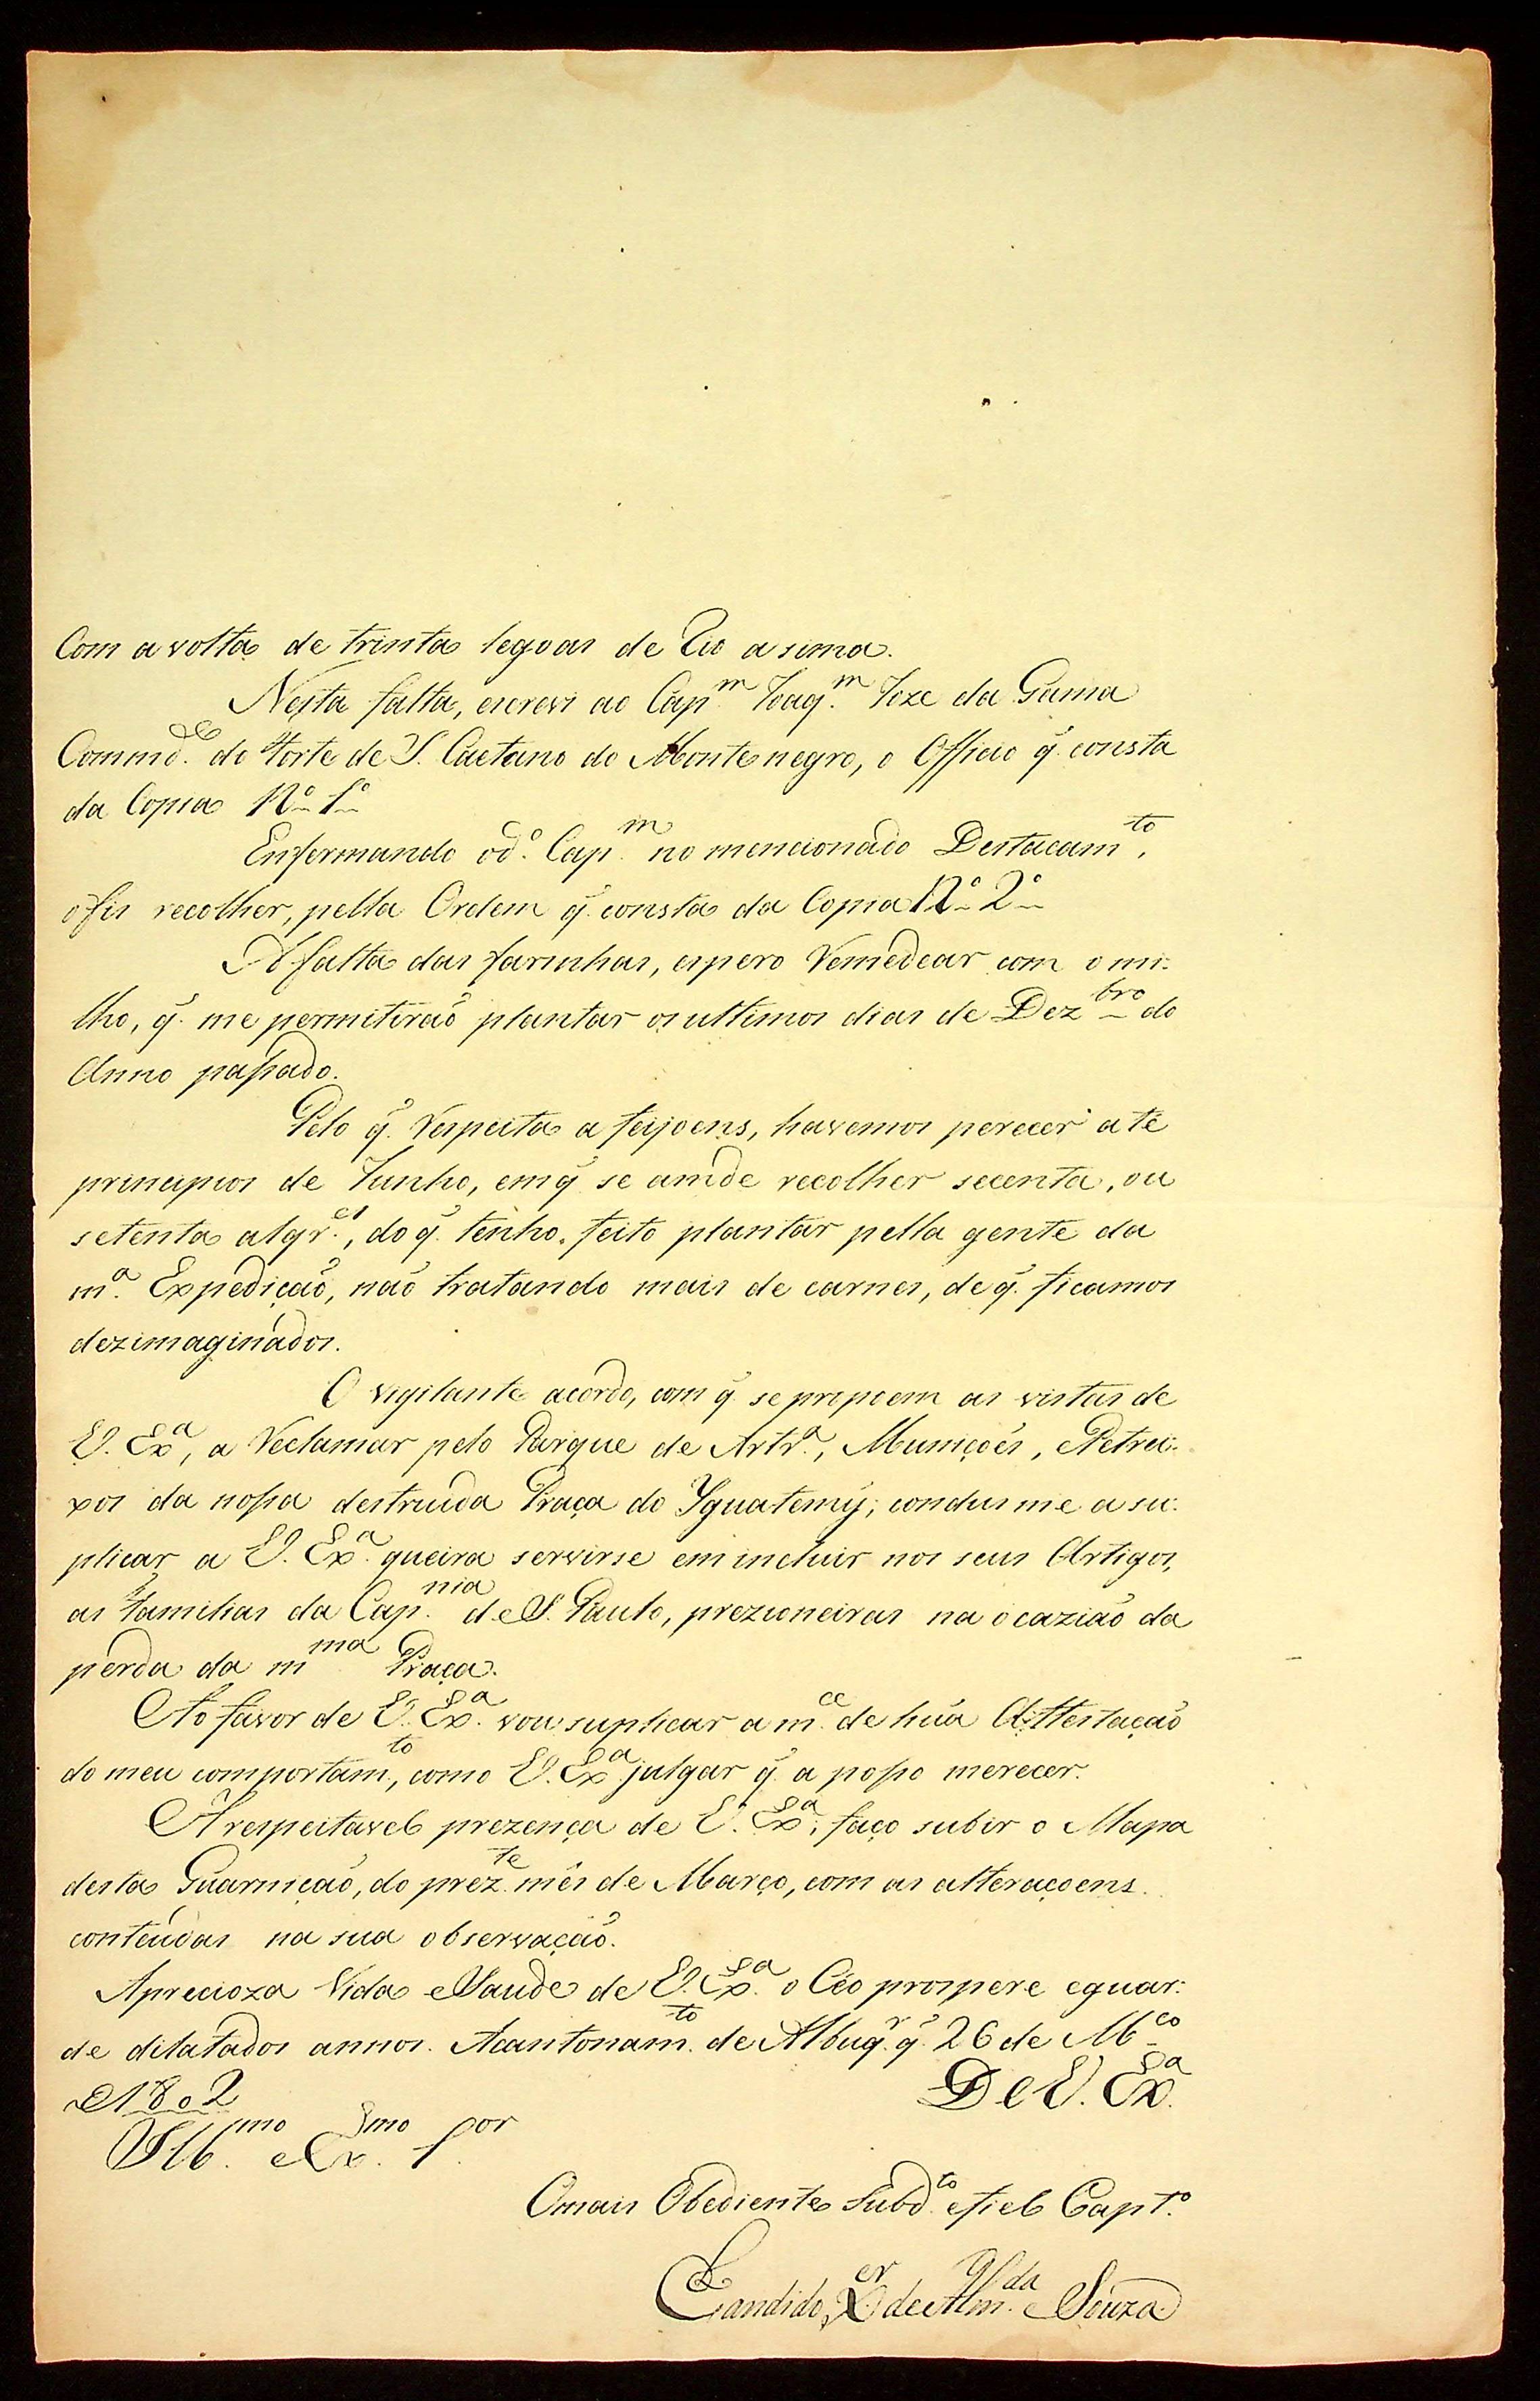 Com a volta de trinta legoas de Rio a sima.
Nesta falta, escrevi ao Cap.m Joaq.m Joze da Gama
Commd.e do Forte de S. Caetano do Monte negro, o Officio q̃ consta
da Copia N.o 1.o
Enfermando o d.o Cap.m no mencionado Destacam.to,
o fis recolher, pella Ordem q̃ consta da Copia N.o 2.o
A falta das farinhas, espero Remedear com o mi:
lho, q̃ me permitirão plantar os ultimos dias de Dez.bro do
Anno passado.
Pelo q̃ Respeita a feijoens, havemos perecer a té
principios de Junho, em q̃ se am de recolher secenta, ou
setenta alqr.es, do q̃ tenho feito plantar pella gente da
m.a Expedição, não tratando mais de carnes, de q̃ ficamos
dezimaginados.
O vigilante acordo, com q̃ se propoem as vistas de
V. Ex.a, a Reclamar pelo Parque de Artr.a, Munições, e Petrei:
xos da nossa destruida Praça do Yguatemÿ; condus me a su:
plicar a V. Ex.a queira servirse em incluir nos seus Artigos,
as familias da Cap.nia de S. Paulo, prezioneiras na ocazião da
perda da m.ma Praça.
Ao favor de V. Ex.a vou suplicar a m.ce de hũa Attestação
do meu comportam.to, como V. Ex.a julgar q̃ a posso merecer.
A respeitavel prezença de V. Ex.a, faço subir o Mapa
desta Guarnição, do prez.te mês de Março, com as alteraçoens
conteudas na sua observação.
A precioza Vida e Saude de V. Ex.a o Céo prospere e guar:
de dilatados annos. Acantonam.to de Albuq.r q̃ 26 de M.co
de 1802
De V. Ex.a
Ill.mo e Ex.mo S.or
O mais Obediente Subd.to e fiel Capt.o
Candido X.er de Alm.da e Souza